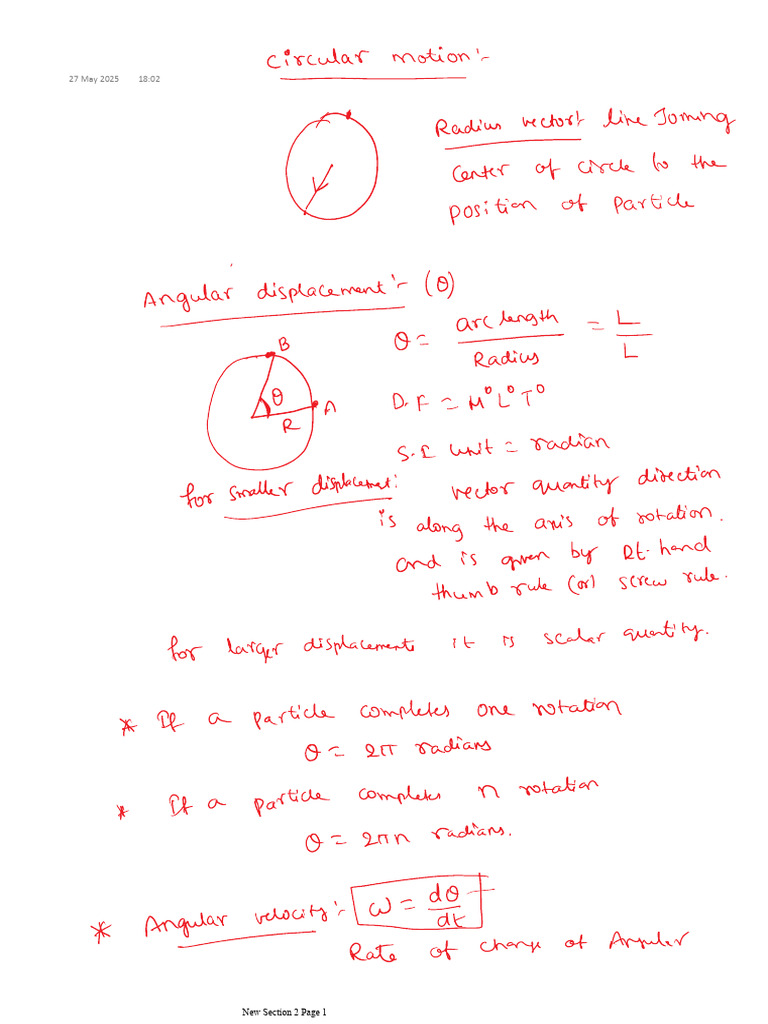 27 May 2025 18:02
Circular motion:-
Radius vector:- line Joining
Center of circle to the
position of Particle
Angular displacement:- (θ)
θ = arc length / Radius = L / L
B
θ
A
R
D.F = M⁰L⁰T⁰
S.I unit = radian
for smaller displacement: vector quantity direction
is along the axis of rotation.
and is given by Rt. hand
thumb rule (or) screw rule.
for larger displacements it is scalar quantity.
* If a particle completes one rotation
θ = 2π radians
* If a particle completes n rotation
θ = 2πn radians.
* Angular velocity:- ω = dθ/dt
Rate of change of Angular
New Section 2 Page 1